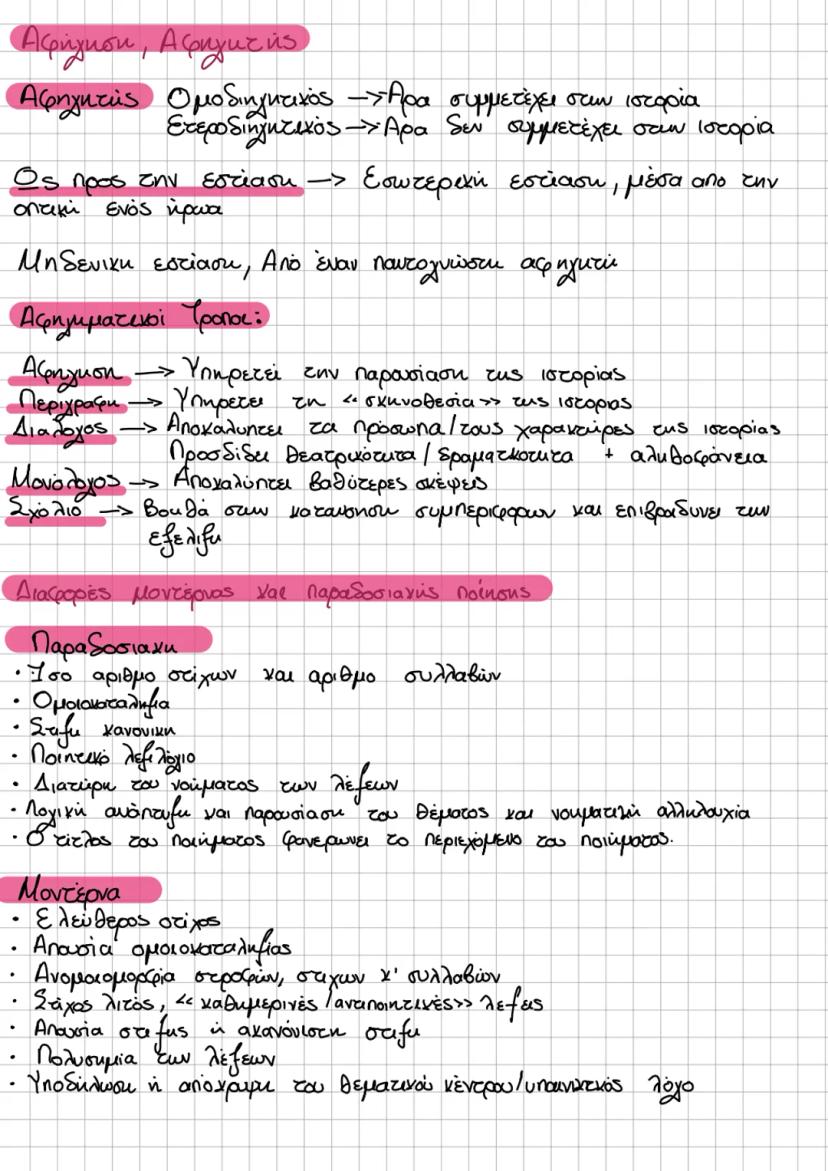 Αφήγηση, Αφηγητής
Αφηγητής Ομοδιηγητικός → Άρα συμμετέχει στην ιστορία
Ετεροδιηγητικός → Άρα δεν συμμετέχει στην ιστορία
Ως προς την εστίαση → Εσωτερική εστίαση, μέσα απο την
οπτική ενός ήρωα
Μηδενικη εστίαση, Από έναν παντογνώστη αφηγητή
Αφηγηματικοί Τροποι:
Αφηγηση → Υπηρετεί την παρουσίαση της ιστορίας
Περιγραφη → Υπηρετει τη «σκηνοθεσία» της ιστοριας
Διάλογος → Αποκαλυπτει τα πρόσωπα/τους χαρακτήρες της ιστορίας
Προσδίδει θεατρικότητα/δραματικοτητα + αληθοφάνεια
Μονόλογος → Αποκαλύπτει βαθύτερες σκέψεις
Σχόλιο → Βοηθά στην κατανοηση συμπεριφορων και επιβραδυνει την
εξελιξη
Διαφορές μοντέρνας και παραδοσιακής ποίησης
Παραδοσιακη
· Ισο αριθμο στίχων και αριθμο συλλαβών
· Ομοιοκαταληξια
· Στιξη κανονικη
· Ποιητικό λεξιλόγιο
· Διατήρη του νοήματος των λέξεων
· Λογική ανάπτυξη και παρουσίαση του θέματος και νοηματική αλληλουχία
· Ο τίτλος του ποιήματος φανερωνει το περιεχόμενο του ποιήματος.
Μοντέρνα
· Ελεύθερος στίχος
· Απουσία ομοιοκαταληξίας
· Ανομοιομορφία στροφών, στιχων κ' συλλαβών
· Στίχος λιτός, «καθημερινές/αντιποιητικές» λεξεις
· Απουσία στιξης ή ακανόνιστη στιξη
· Πολυσημία των λέξεων
· Υποδήλωση ή απόκρυψη του θεματικού κέντρου/υπαινικτικός λόγο